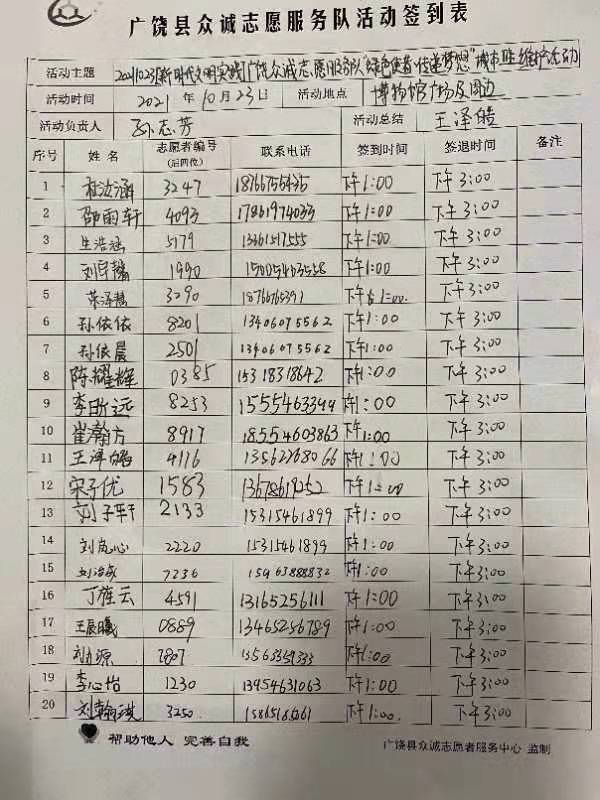 广饶县众诚志愿服务队活动签到表
活动主题 20211023[新时代文明实践]广饶众诚志愿服务队"绿色使者·传递梦想"城市驿站维护活动
活动时间 2021年10月23日 活动地点 博物馆广场及周边
活动负责人 孙志芳 活动总结 王泽皓
序号 姓名 志愿者编号(后四位) 联系电话 签到时间 签退时间 备注
1 3247 18766755435 下午1:00 下午3:00
2 邵雨轩 4093 17861974033 下午1:00 下午3:00
3 生浩涵 5179 13361517555 下午1:00 下午3:00
4 刘宇馨 1990 15005463558 下午1:00 下午3:00
5 3290 下午1:00 下午3:00
6 孙依依 8201 13406075562 下午1:00 下午3:00
7 孙依晨 2501 13406075562 下午1:00 下午3:00
8 陈耀辉 0385 15318318642 下午1:00 下午3:00
9 李昕远 8253 1555463399 下午1:00 下午3:00
10 崔瀚方 8917 18554603863 下午1:00 下午3:00
11 王泽皓 4116 13562268066 下午1:00 下午3:00
12 宋子优 1583 下午1:00 下午3:00
13 刘子轩 2133 15315461899 下午1:00 下午3:00
14 刘岚心 2220 15315461899 下午1:00 下午3:00
15 7236 15963888832 下午1:00 下午3:00
16 丁雒云 4591 13165256111 下午1:00 下午3:00
17 王晨曦 0889 13465256789 下午1:00 下午3:00
18 7807 下午1:00 下午3:00
19 李心怡 1230 13954631063 下午1:00 下午3:00
20 刘翰琪 3250 下午1:00 下午3:00
帮助他人 完善自我 广饶县众诚志愿者服务中心 监制